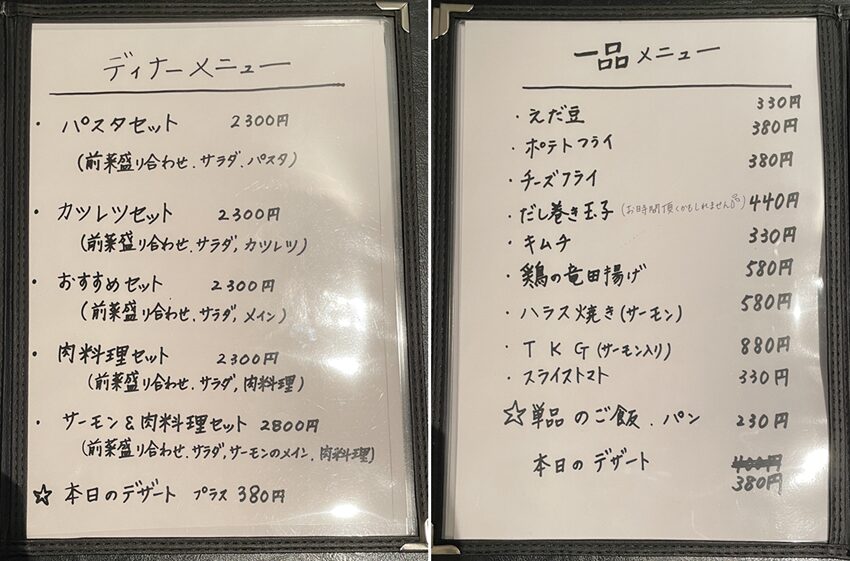 ディナーメニュー
・パスタセット 2300円
(前菜盛り合わせ.サラダ.パスタ)
・カツレツセット 2300円
(前菜盛り合わせ.サラダ,カツレツ)
・おすすめセット 2300円
(前菜盛り合わせ.サラダ,メイン)
・肉料理セット 2300円
(前菜盛り合わせ.サラダ,肉料理)
・サーモン&肉料理セット 2800円
(前菜盛り合わせ.サラダ,サーモンのメイン.肉料理)
☆本日のデザート プラス380円
一品メニュー
・えだ豆 330円
・ポテトフライ 380円
・チーズフライ 380円
・だし巻き玉子(お時間頂くかもしれません) 440円
・キムチ 330円
・鶏の竜田揚げ 580円
・ハラス焼き(サーモン) 580円
・TKG(サーモン入り) 880円
・スライストマト 330円
☆単品のご飯.パン 230円
本日のデザート 400円
380円